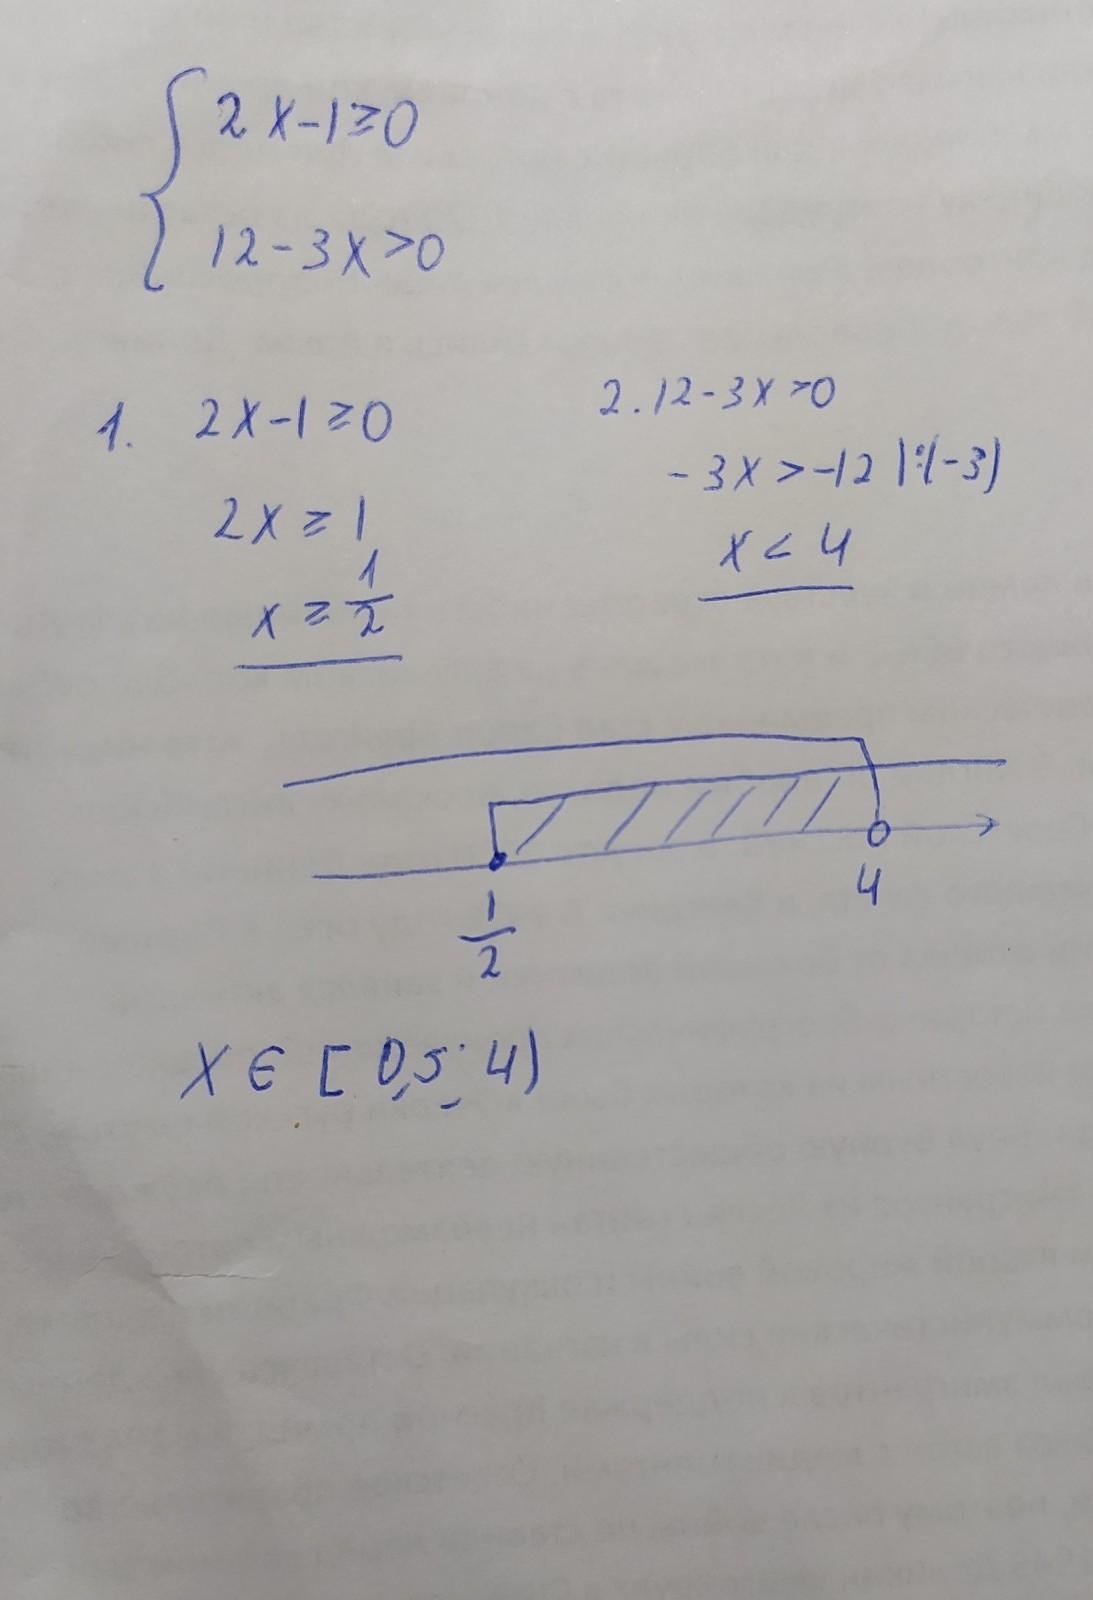 { 2x-1≥0
12-3x>0
1. 2x-1≥0
2x≥1
x≥1/2
2. 12-3x>0
-3x>-12 |:(-3)
x<4
1/2 4
x∈[0,5; 4)